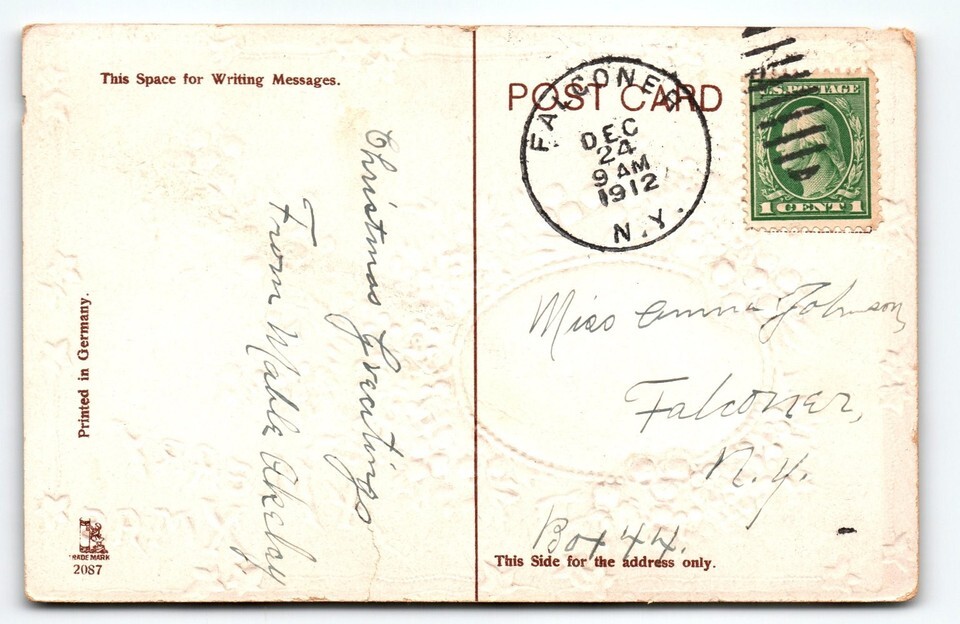 This Space for Writing Messages.
Christmas Greetings
From Mable
Printed in Germany.
TRADE MARK
2087
POST CARD
FALCONER
DEC
24
9 AM
1912
N.Y.
U.S. POSTAGE
1 CENT 1
Miss Anna Johnson,
Falconer,
N.Y.
Box 44.
This Side for the address only.